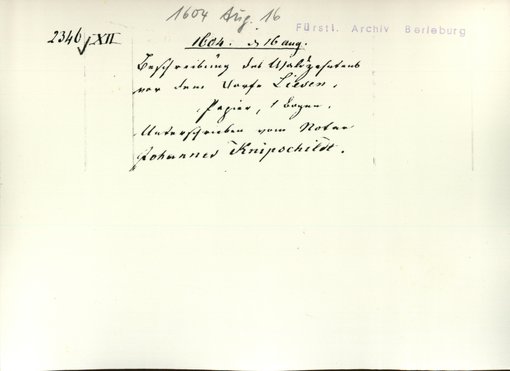 1604 Aug. 16
Fürstl. Archiv Berleburg
2346 XII
1604. d. 16 aug.
Beschreibung des Waldzehntens
vor dem Dorfe Liesen.
Papier, 1 Bogen.
Unterschrieben vom Notar
Johannes Knipschildt.